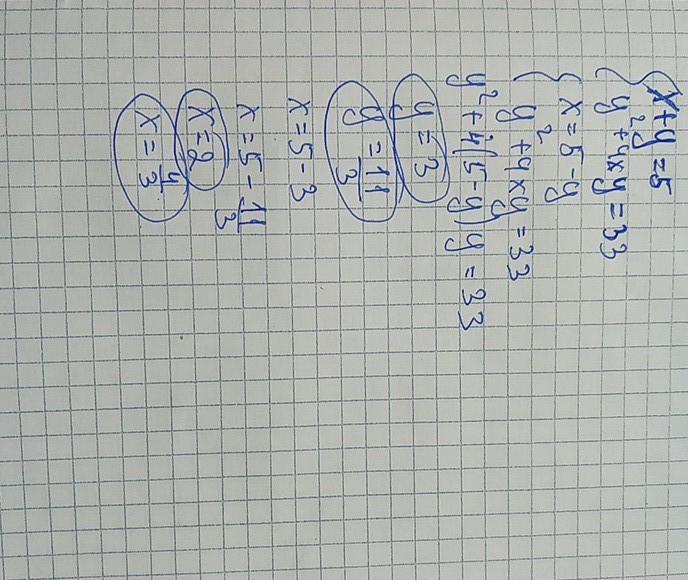 x+y=5
y²+4xy=33
x=5-y
y²+4xy=33
y²+4(5-y)y=33
y=3
y=11/3
x=5-3
x=5-11/3
x=2
x=4/3